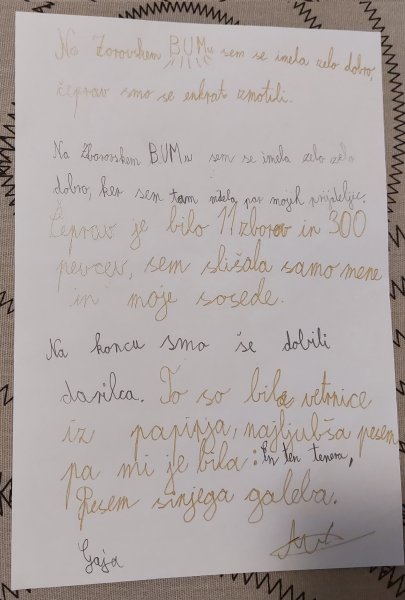 Na Zborovskem BUMu sem se imela zelo dobro,
čeprav smo se enkrat zmotili.
Na Zborovskem BUMu sem se imela zelo zelo
dobro, ker sem tam videla par mojih prijateljic.
Čeprav je bilo 11 zborov in 300
pevcev, sem slišala samo mene
in moje sosede.
Na koncu smo še dobili
darilca. To so bile vetrnice
iz papirja, najljubša pesem
pa mi je bila: En ten tenera,
Pesem sinjega galeba.
Gaja